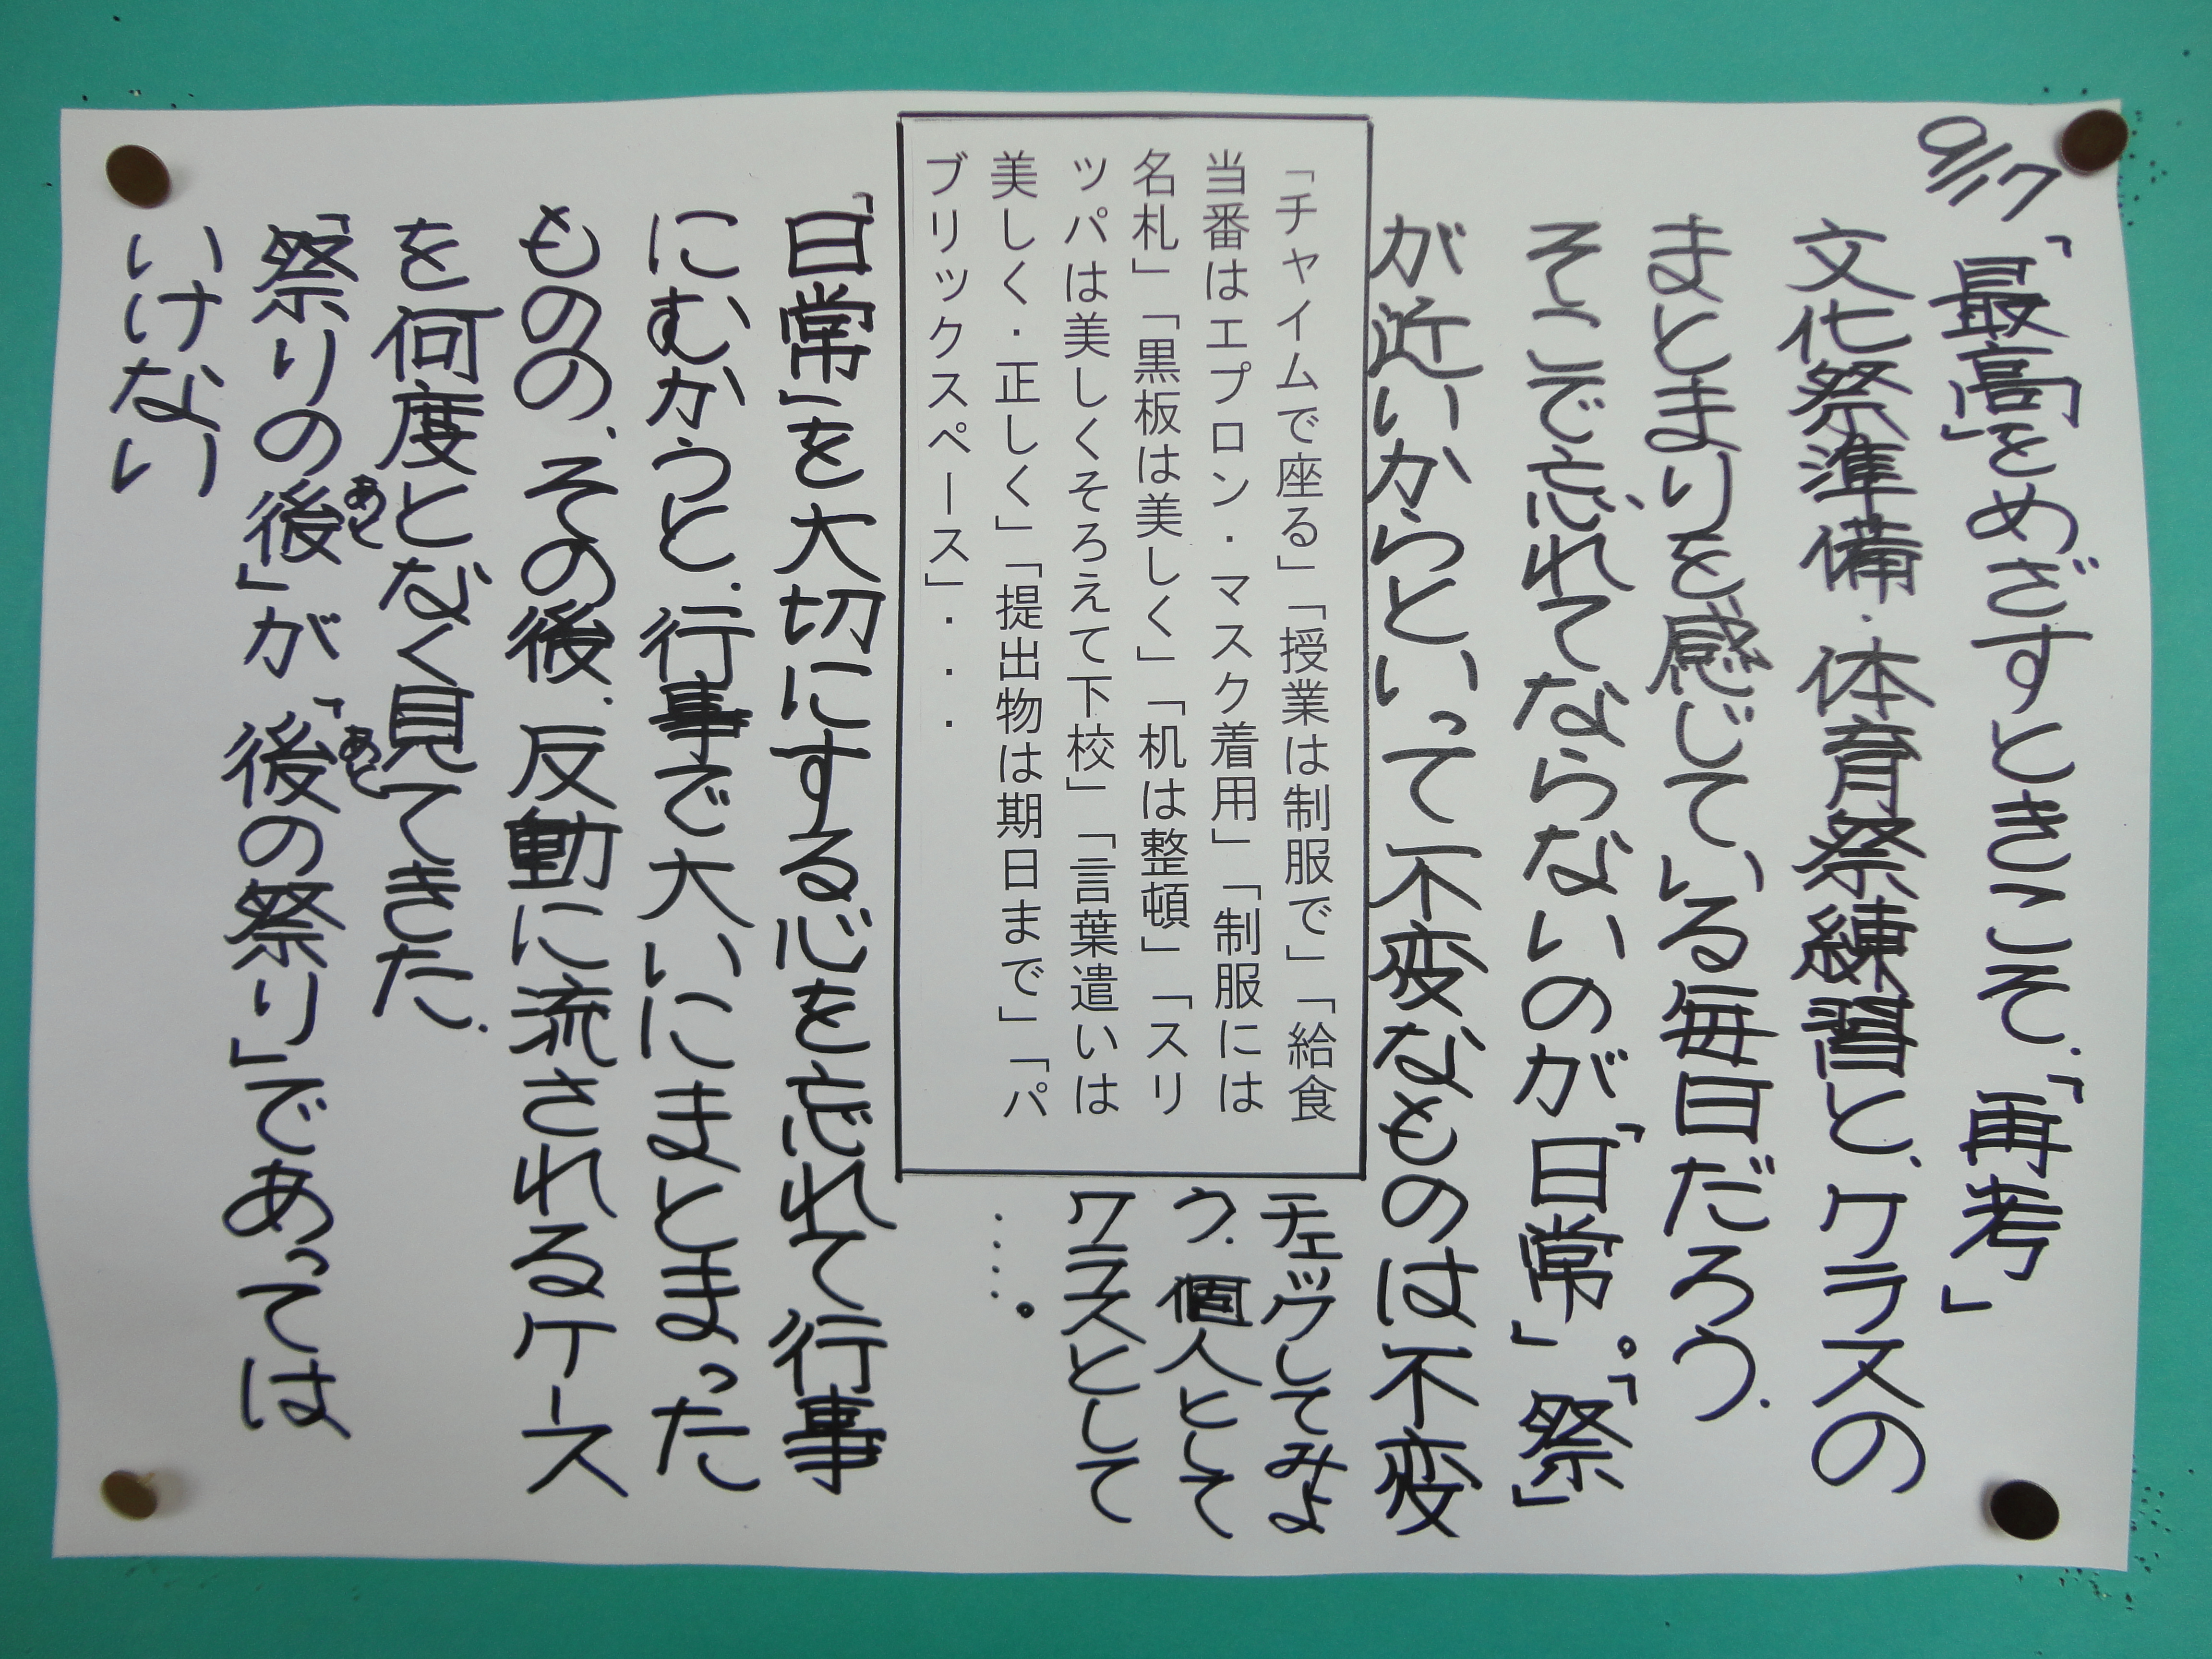 9/17
「最高」をめざすときこそ、「再考」
文化祭準備・体育祭練習と、クラスの
まとまりを感じている毎日だろう。
そこで忘れてならないのが「日常」。「祭」
が近いからといって不変なものは不変
「チャイムで座る」「授業は制服で」「給食
当番はエプロン・マスク着用」「制服には
名札」「黒板は美しく」「机は整頓」「スリ
ッパは美しくそろえて下校」「言葉遣いは
美しく・正しく」「提出物は期日まで」「パ
ブリックスペース」・・・・
チェックしてみよ
う。個人として
クラスとして
‥‥。
「日常」を大切にする心を忘れて行事
にむかうと、行事で大いにまとまった
ものの、その後、反動に流されるケース
を何度となく見てきた。
「祭りの後」が、「後の祭り」であっては
あと
あと
いけない